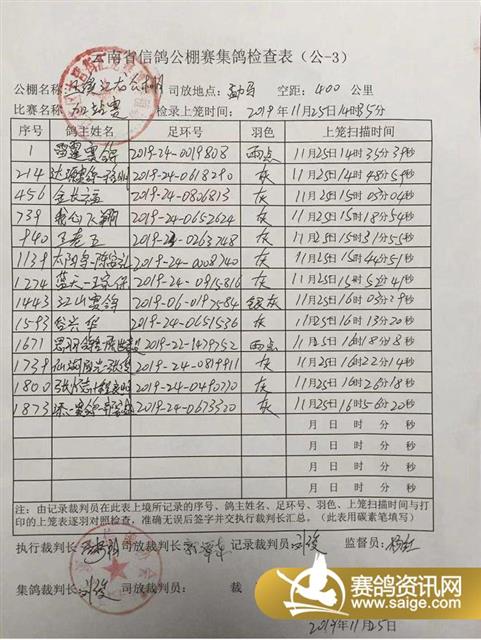 云南省信鸽公棚赛集鸽检查表（公-3）
公棚名称 司放地点: 勐马 空距: 400 公里
比赛名称: 加站赛 检录上笼时间: 2019年11月25日14时35分
序号 鸽主姓名 足环号 羽色 上笼扫描时间
1 雷霆赛鸽 2019-24-0019808 雨点 11月25日14时35分39秒
214 2019-24-0618290 灰 11月25日14时48分59秒
456 金长福 2019-24-0806813 灰 11月25日15时03分04秒
739 我心飞翔 2019-24-0652624 灰 11月25日15时18分54秒
940 王老五 2019-24-0263748 灰 11月25日15时31分55秒
1139 2019-24-0008740 灰 11月25日15时44分51秒
1274 蓝天-王家保 2019-24-0915816 灰 11月25日15时52分41秒
1443 江山赛鸽 2019-06-0197584 银灰 11月25日16时03分29秒
1593 2019-24-0651536 灰 11月25日16时13分20秒
1671 2019-22-1479752 雨点 11月25日16时18分8秒
1739 2019-24-0819911 灰 11月25日16时22分14秒
1800 2019-24-0490770 灰 11月25日16时26分18秒
1873 2019-24-0673320 灰 11月25日16时56分20秒
月 日 时 分 秒
月 日 时 分 秒
月 日 时 分 秒
月 日 时 分 秒
注: 由记录裁判员在此表上境所记录的序号、鸽主姓名、足环号、羽色、上笼扫描时间与打
印的上笼表逐羽对照检查，准确无误后签字并交执行裁判长汇总。（此表用碳素笔填写）
执行裁判长 司放裁判长 记录裁判员: 刘俊 监督员:
集鸽裁判长: 刘俊 司放裁判员: 裁
赛鸽资讯网
www.saige.com
2019年11月25日